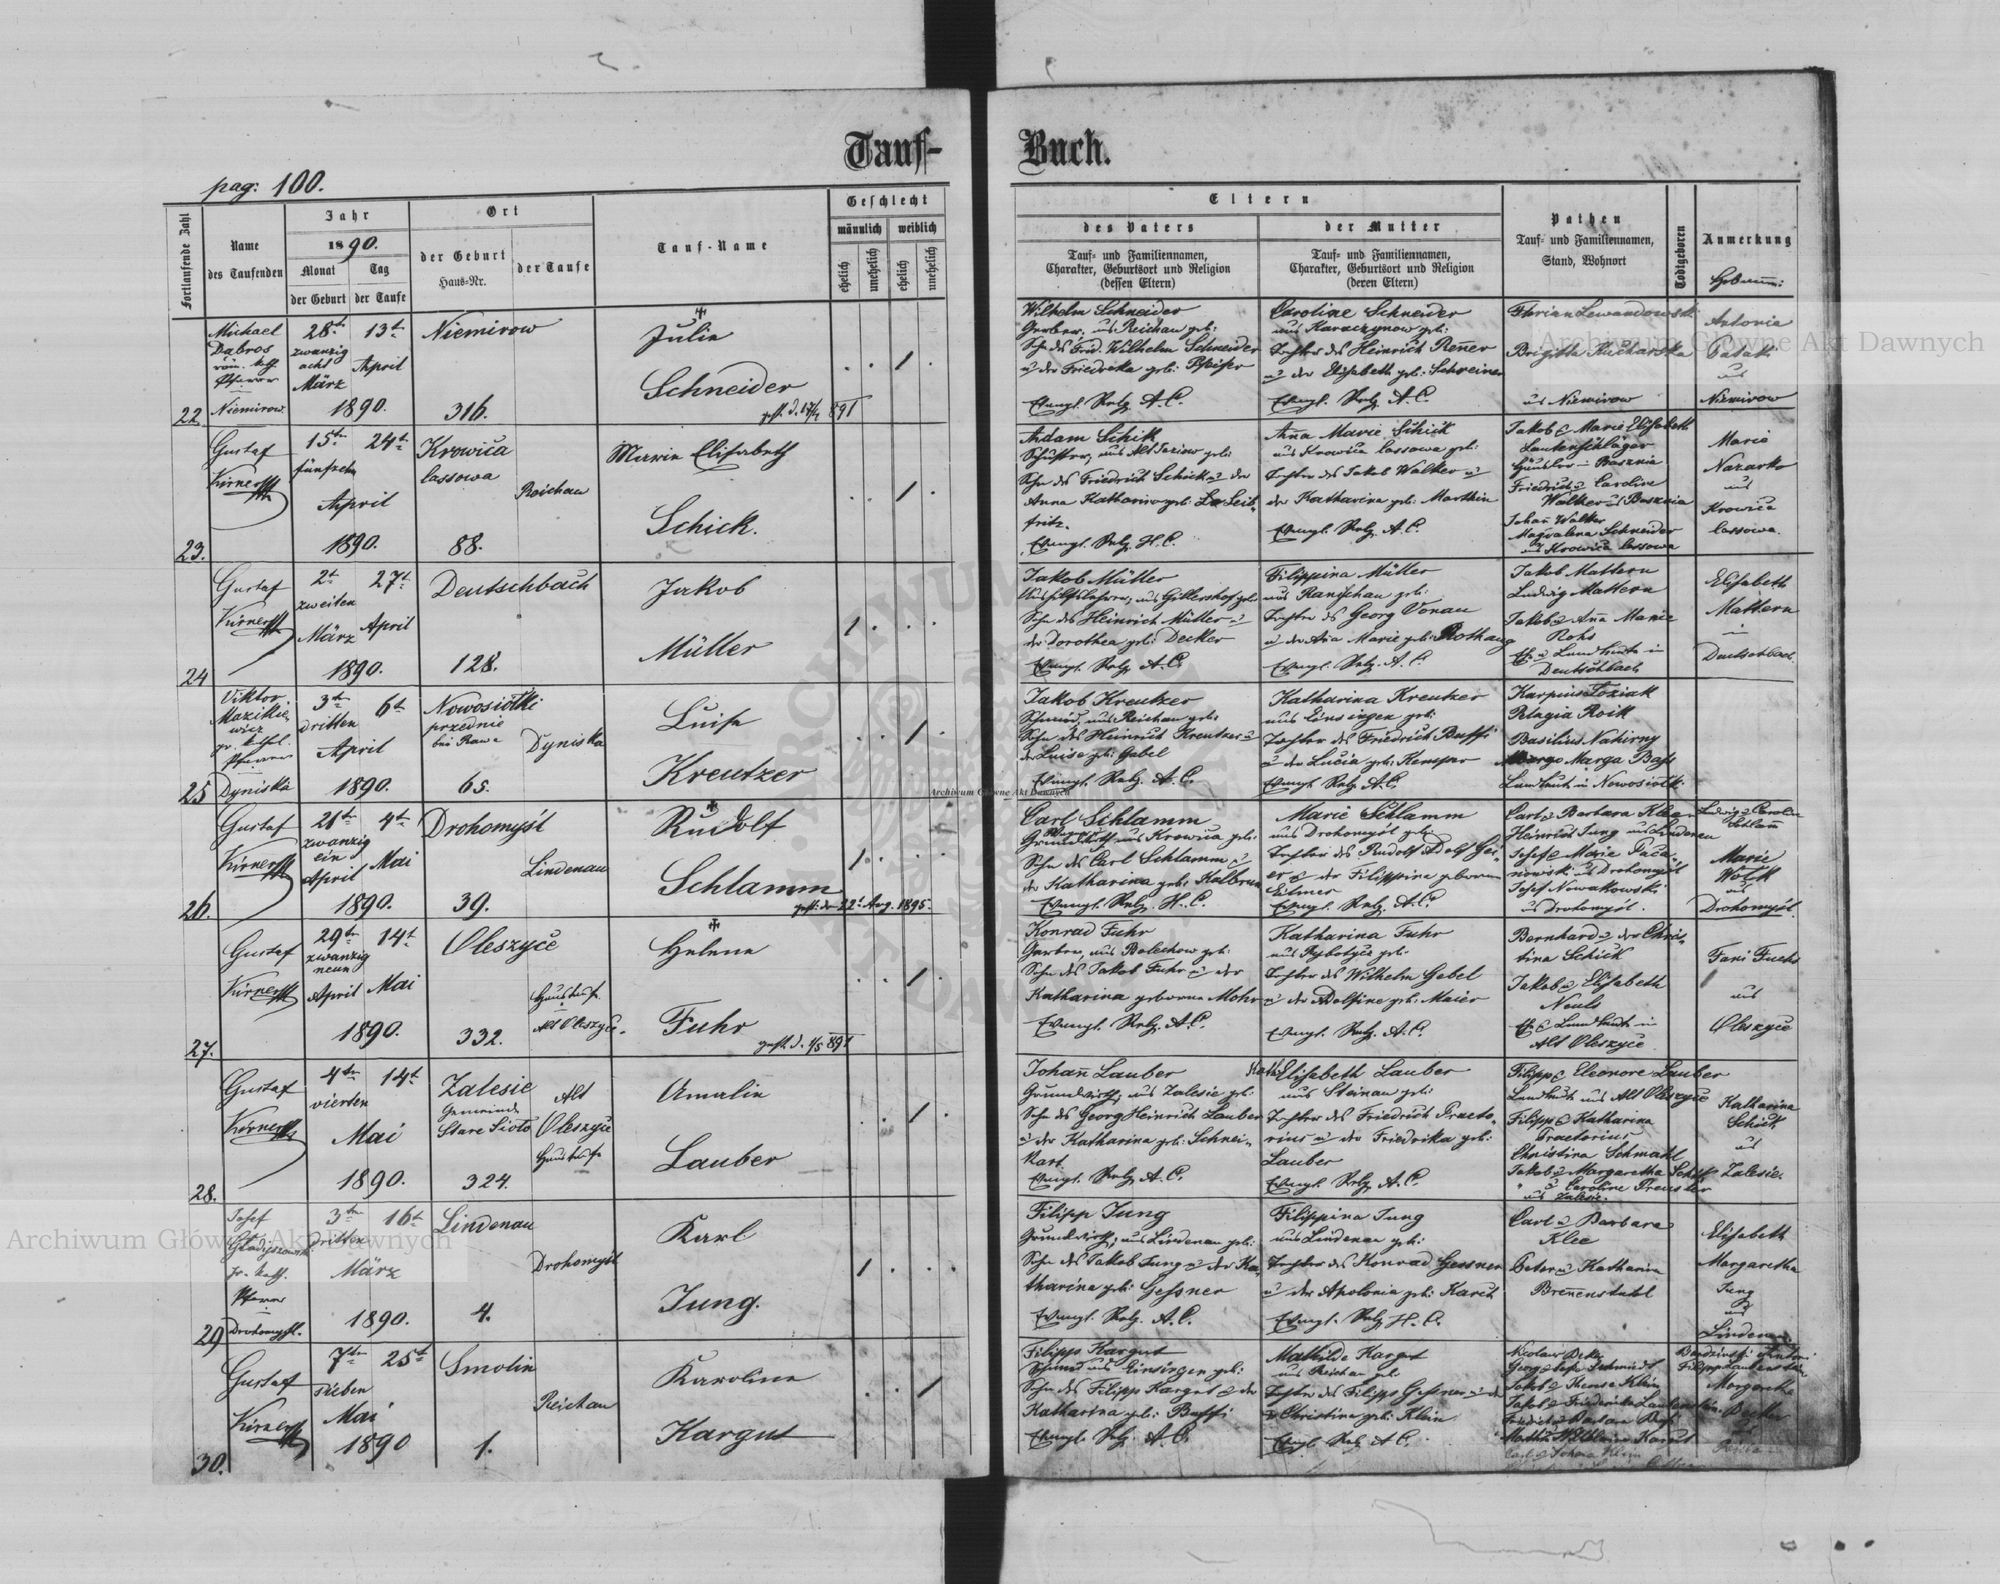 Tauf-
Buch.
pag: 100.
Fortlaufende Zahl
Name
des Taufenden
Jahr
1890.
Monat
Tag
der Geburt
der Taufe
Ort
der Geburt
Haus-Nr.
der Taufe
Tauf-Name
Geschlecht
männlich
weiblich
ehelich
unehelich
ehelich
unehelich
Eltern
des Vaters
Tauf- und Familiennamen,
Charakter, Geburtsort und Religion
(dessen Eltern)
der Mutter
Tauf- und Familiennamen,
Charakter, Geburtsort und Religion
(deren Eltern)
Pathen
Tauf- und Familiennamen,
Stand, Wohnort
Todtgeboren
Anmerkung
22.
Michael
Dabros
röm. kth.
Pfarrer
Niemirow
28t
zwanzig
acht
März
13t
April
1890.
Niemirow
316.
Julie
Schneider
gest. d. 17/4 891
Wilhelm Schneider
Gerber, aus Reichau geb:
Sohn des Frid. Wilhelm Schneider
u der Friedrika geb: Pfeifer
Evangl. Relg. A. C.
Caroline Schneider
aus Karaczynow geb:
Tochter des Heinrich Renner
u der Elisabeth geb: Schreiner
Evangl. Relg. A. C.
Florian Lewandowski
Brigitta Kucharska
aus Niemirow
Antonie
aus
Niemirow
23.
Gustaf
Kürner
15tn
fünfzehn
24t
April
1890.
Krowica
lassowa
88.
Reichau
Marie Elisabeth
Schick.
Adam Schik
Schuster, aus Alt Jaziow geb:
Sohn des Friedrich Schick u der
Anna Katharina geb: La Leib-
fritz.
Evangl. Relg. H. C.
Anna Marie Schick
aus Krowica lassowa geb:
Tochter des Jakob Walker u
der Katharina geb: Marthin
Evangl. Relg. A. C.
Jakob & Marie Elisabeth
Lautenschläger
Häusler in Basznia
Friedrich u Caroline
Walker aus Basznia
Johann Walker
Magdalena Schneider
aus Krowica lassowa
Marie
Nazarko
aus
Krowica
lassowa.
24
Gustaf
Kürner
2t
zweiten
März
27t
April
1890.
Deutschbach
128.
Jakob
Müller
Jakob Müller
Aushilfslehrer, aus Gillershof geb:
Sohn des Heinrich Müller u
der Dorothea geb: Decker
Evangl. Relg. A. C.
Filippina Müller
aus Ranischau geb:
Tochter des Georg Vonau
u der Ana Marie geb: Rothaug
Evangl. Relg. A. C.
Jakob Mattern
Ludwig Mattern
Jakob u Anna Marie
Rohs
Landleute in
Deutschbach
Elisabeth
Mattern
in
Deutschbach.
25
Viktor
Mazikie
wicz
gr. kthol.
Pfarrer
Dyniska
3tn
dritten
April
6t
1890.
Nowosiółki
przednie
bei Rawa
65.
Dyniska
Luise
Kreutzer
Jakob Kreutzer
Schmied, aus Reichau geb:
Sohn des Heinrich Kreutzer u
der Luise geb: Gebel
Evangl. Relg. A. C.
Katharina Kreutzer
aus Einsingen geb:
Tochter des Friedrich Buffi
u der Lucia geb: Kemper
Evangl. Relg. A. C.
Karpius Toziak
Pelagia Roik
Basilius Nahirny
Marga Bass
Landleut in Nowosiółki
26.
Gustaf
Kürner
21tn
zwanzig
ein
April
4t
Mai
1890.
Drohomyśl
39.
Lindenau
Rudolf
Schlamm
gest: den 22t Aug. 1895.
Carl Schlamm
Grundwirth, aus Krowica geb:
Sohn des Carl Schlamm u
der Katharina geb: Kalbrun
Evangl. Relg. H. C.
Marie Schlamm
aus Drohomyśl geb:
Tochter des Rudolf Adolf Gei-
er u der Filippina geborne
Eilmer
Evangl. Relg. A. C.
Carl u Barbara Klee
Heinrich Jung aus Lindenau
Josef u Marie Paca-
nowski aus Drohomyśl
Josef Nowakowski
aus Drohomyśl.
Ludwig u Carolin
Schlamm
Marie
Wolk
aus
Drohomyśl.
27.
Gustaf
Kürner
29tn
zwanzig
neun
April
14t
Mai
1890.
Oleszyce
332.
Haustaufe
Alt Oleszyce.
Helene
Fuhr
gest. d. 1/5 891
Konrad Fuhr
Gerber, aus Bolechow geb:
Sohn des Jakob Fuhr u der
Katharina geborne Mohr
Evangl. Relg. A. C.
Katharina Fuhr
aus Rybotyce geb:
Tochter des Wilhelm Gebel
u der Adolfine geb: Maier
Evangl. Relg. A. C.
Bernhard u der Chris-
tina Schick
Jakob u Elisabeth
Neuls
Landleute in
Alt Oleszyce
Fani Fuchs
aus
Oleszyce
28.
Gustaf
Kürner
4tn
vierten
Mai
14t
1890.
Zalesie
Gemeinde
Stare Sioło
324.
Alt
Oleszyce
Haustaufe
Amalie
Lauber
Johann Lauber
Grundwirth, aus Zalesie geb:
Sohn des Georg Heinrich Lauber
u der Katharina geb: Schnei-
kart.
Evangl. Relg. A. C.
Kath. Elisabeth Lauber
aus Steinau geb:
Tochter des Friedrich Praeto-
rius u der Friedrika geb:
Lauber
Evangl. Relg. A. C.
Filipp & Eleonore Lauber
Landleut aus Alt Oleszyce
Filipp & Katharina
Praetorius
Christina Schmahl
Jakob u Margaretha Schick
u Caroline Preuster
aus Zalesie.
Katharina
Schick
aus
Zalesie.
29
Josef
gr. kath.
Pfarrer
Drohomyśl.
3tn
dritten
März
16t
1890.
Lindenau
4.
Drohomyśl
Karl
Jung.
Filipp Jung
Grundwirth, aus Lindenau geb:
Sohn des Jakob Jung u der Ka-
tharina geb: Gessner
Evangl. Relg. A. C.
Filippina Jung
aus Lindenau geb:
Tochter des Konrad Gessner
u der Apolonia geb: Karch
Evangl. Relg. H. C.
Carl u Barbara
Klee
Peter u Katharina
Brennenstuhl
Elisabeth
Margaretha
Jung
aus
Lindenau
30.
Gustaf
Kürner
7tn
sieben
Mai
25t
1890
Smolin
1.
Reichau
Karoline
Kargut
Filipp Kargut
Schmied aus Einsingen geb:
Sohn des Filipp Kargut u der
Katharina geb: Buffi
Evangl. Relg. A. C.
Mathilde Kargut
aus Reichau geb:
Tochter des Filipp Gessner u der
Christine geb: Klein
Evangl. Relg. A. C.
Jakob u Theresa Klein
Margaretha
Decker
Archiwum Główne Akt Dawnych
Archiwum Główne Akt Dawnych
Archiwum Główne Akt Dawnych